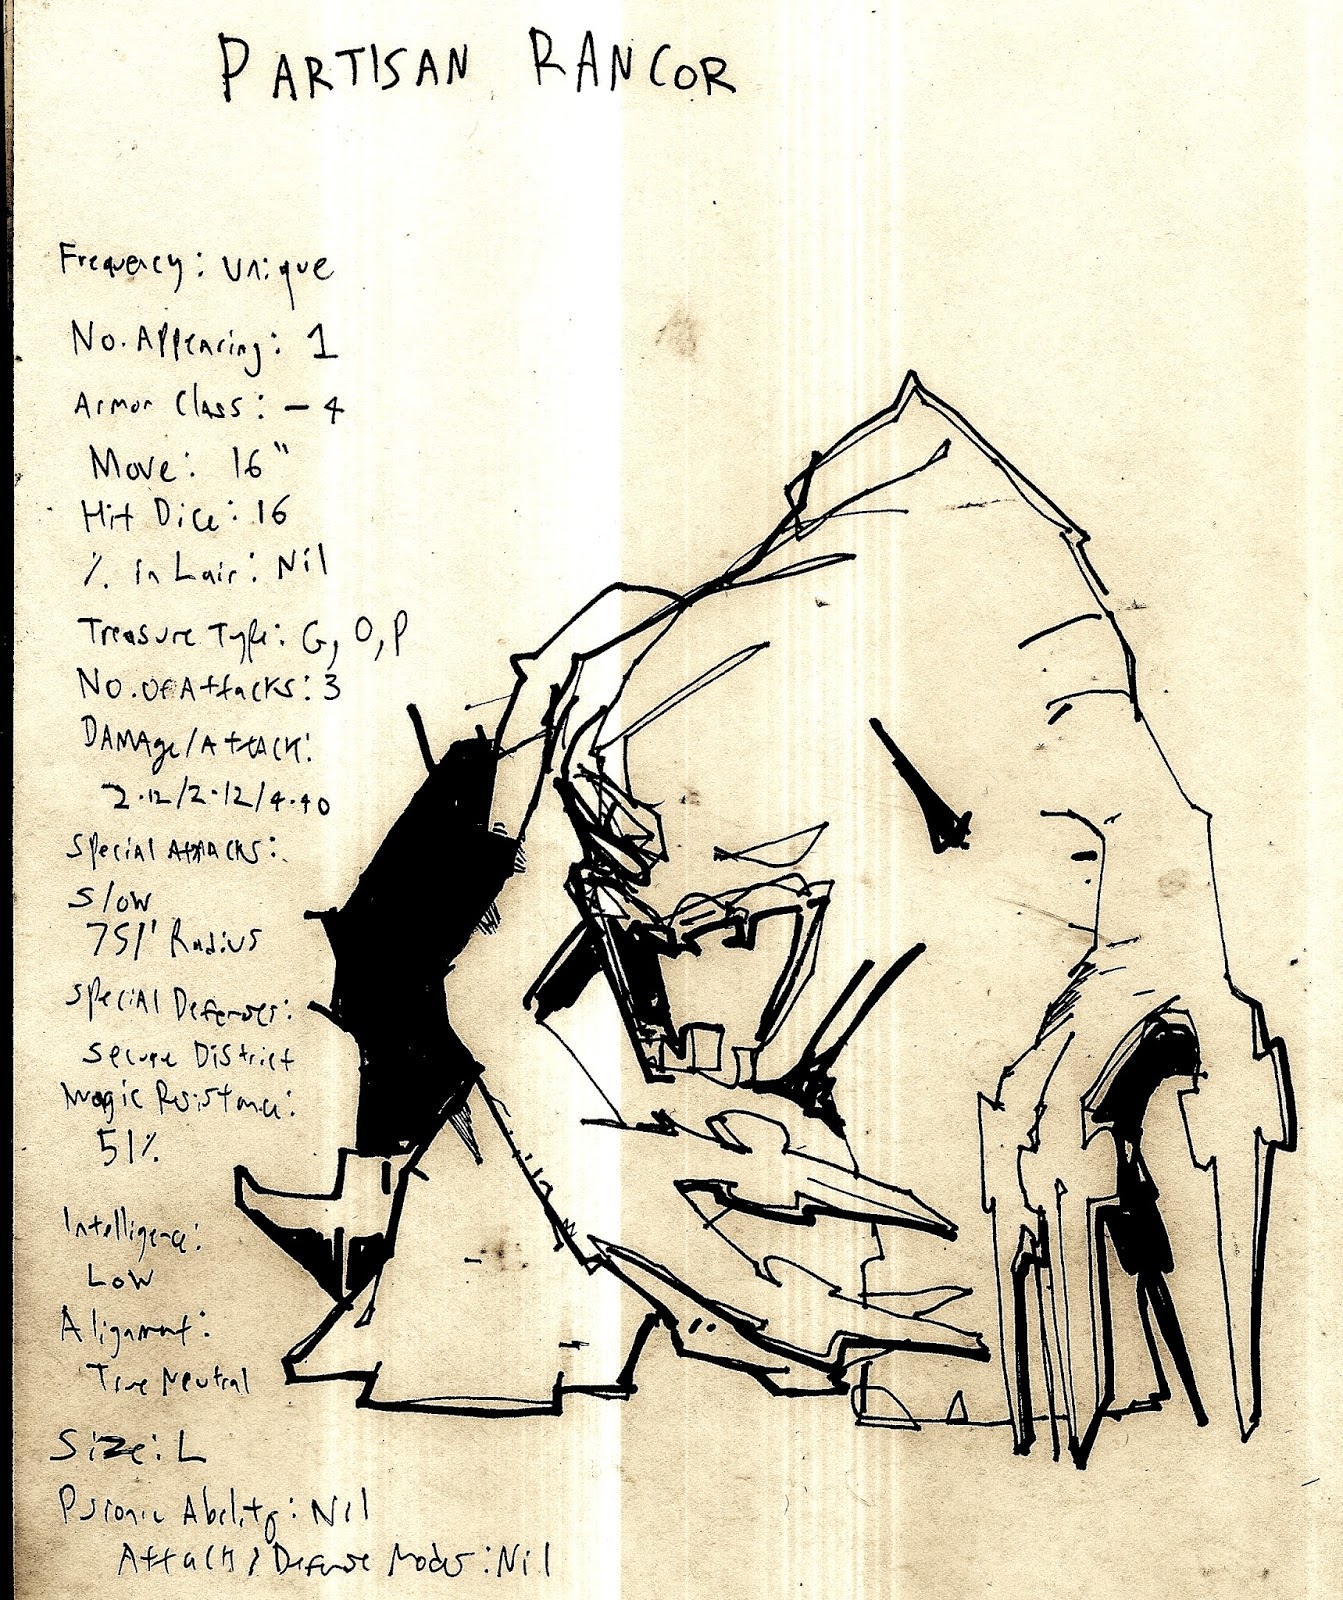 PARTISAN RANCOR
Frequency: Unique
No. Appearing: 1
Armor Class: -4
Move: 16"
Hit Dice: 16
% in Lair: Nil
Treasure Type: G, O, P
No. Of Attacks: 3
DAMAge/AttACK:
2-12/2-12/4-40
Special AttACKS:
Slow
75' Radius
Special Defenses:
Secure District
Magic Resistance:
51%
Intelligence:
Low
Alignment:
True Neutral
Size: L
Psionic Ability: Nil
Attack/Defense Modes: Nil